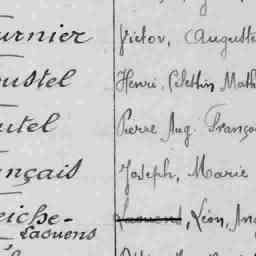 urnier Victor, Auguste
oustel Henri, Célestin Math
utel Pierre Aug. Franço
nçais Joseph, Marie
eiche- Laouens, Léon, Au
Laouens